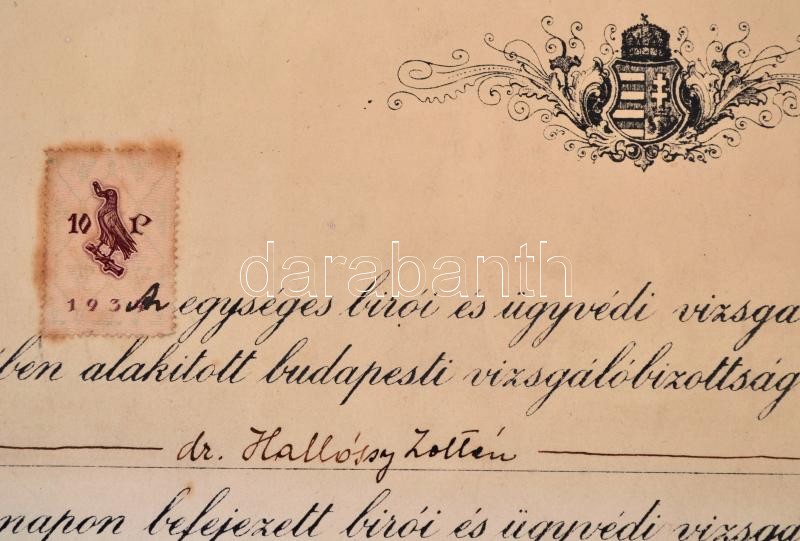 10 P
193
darabanth
Az egységes birói és ügyvédi vizsga
ben alakitott budapesti vizsgálóbizottság
dr. Hallóssy Zoltán
napon befejezett birói és ügyvédi vizsga